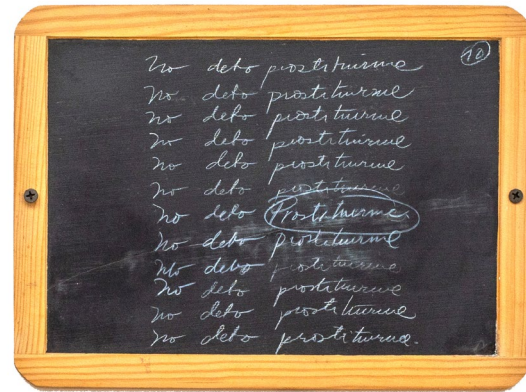 10
no debo prostituirme
no debo prostituirme
no debo prostituirme
no debo prostituirme
no debo prostituirme
no debo prostituirme
no debo Prostituirme.
no debo prostituirme
no debo prostituirme
no debo prostituirme
no debo prostituirme
no debo prostituirme.